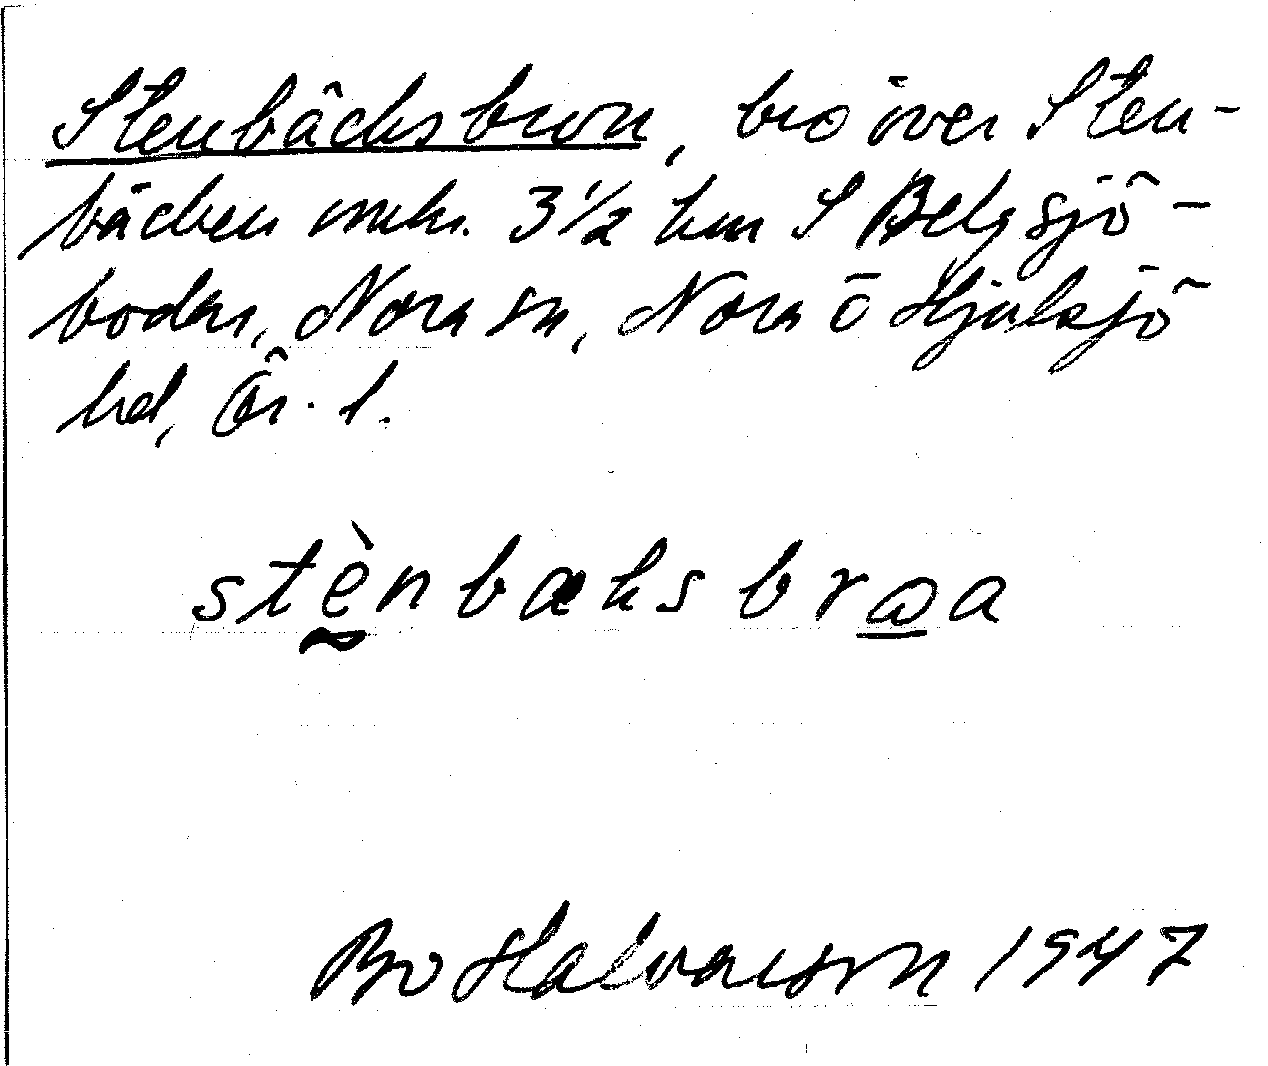 Stenbäcksbron, bro över Sten-
bäcken omkr. 3 1/2 km S Belgsjö-
bodar, Nora sn, Nora o Hjulsjö
hd, Ör. l.
stènbæksbrɷa
Bo Halvarson 1947